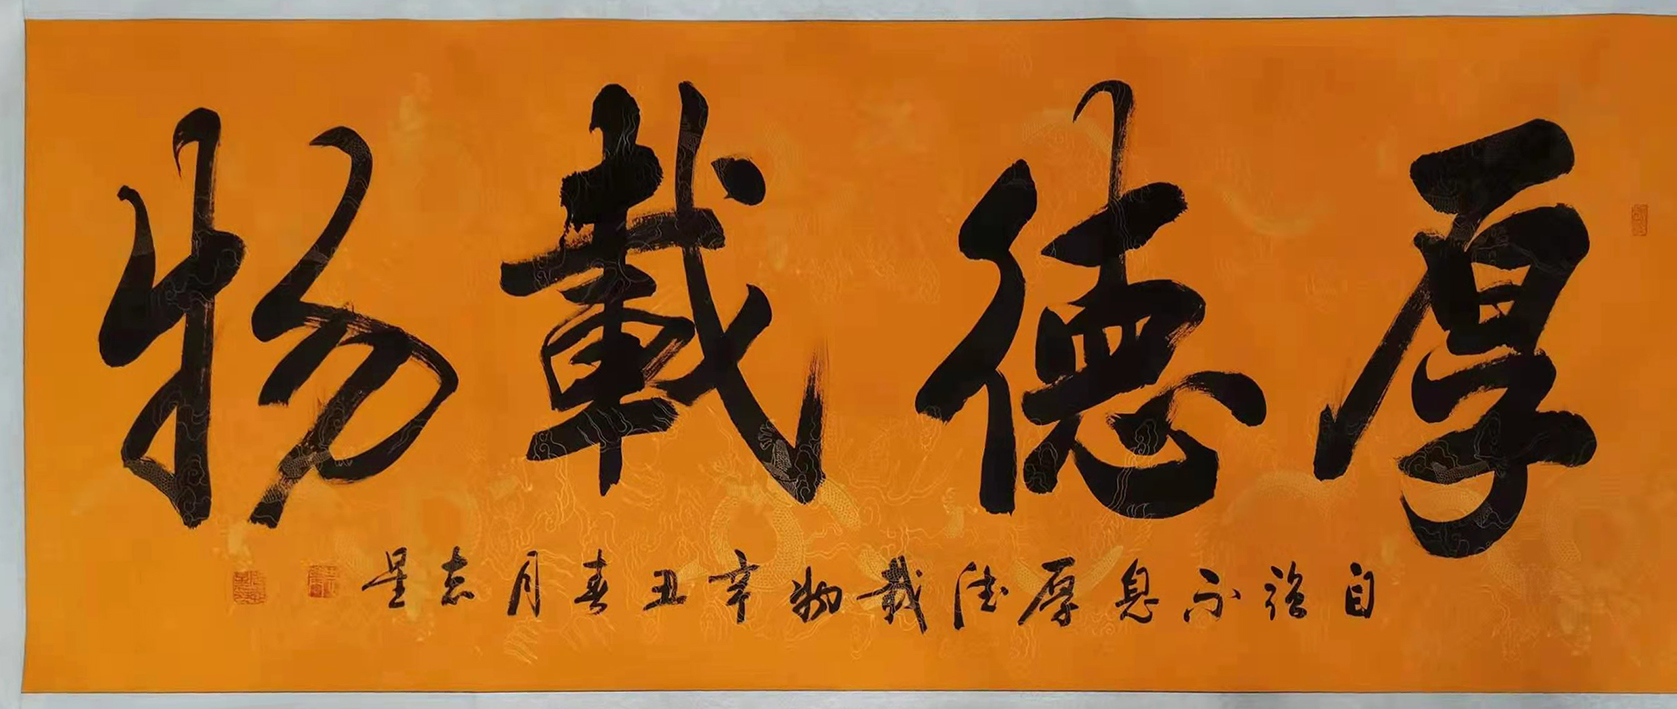 厚德載物
自強不息厚德載物辛丑春月志星